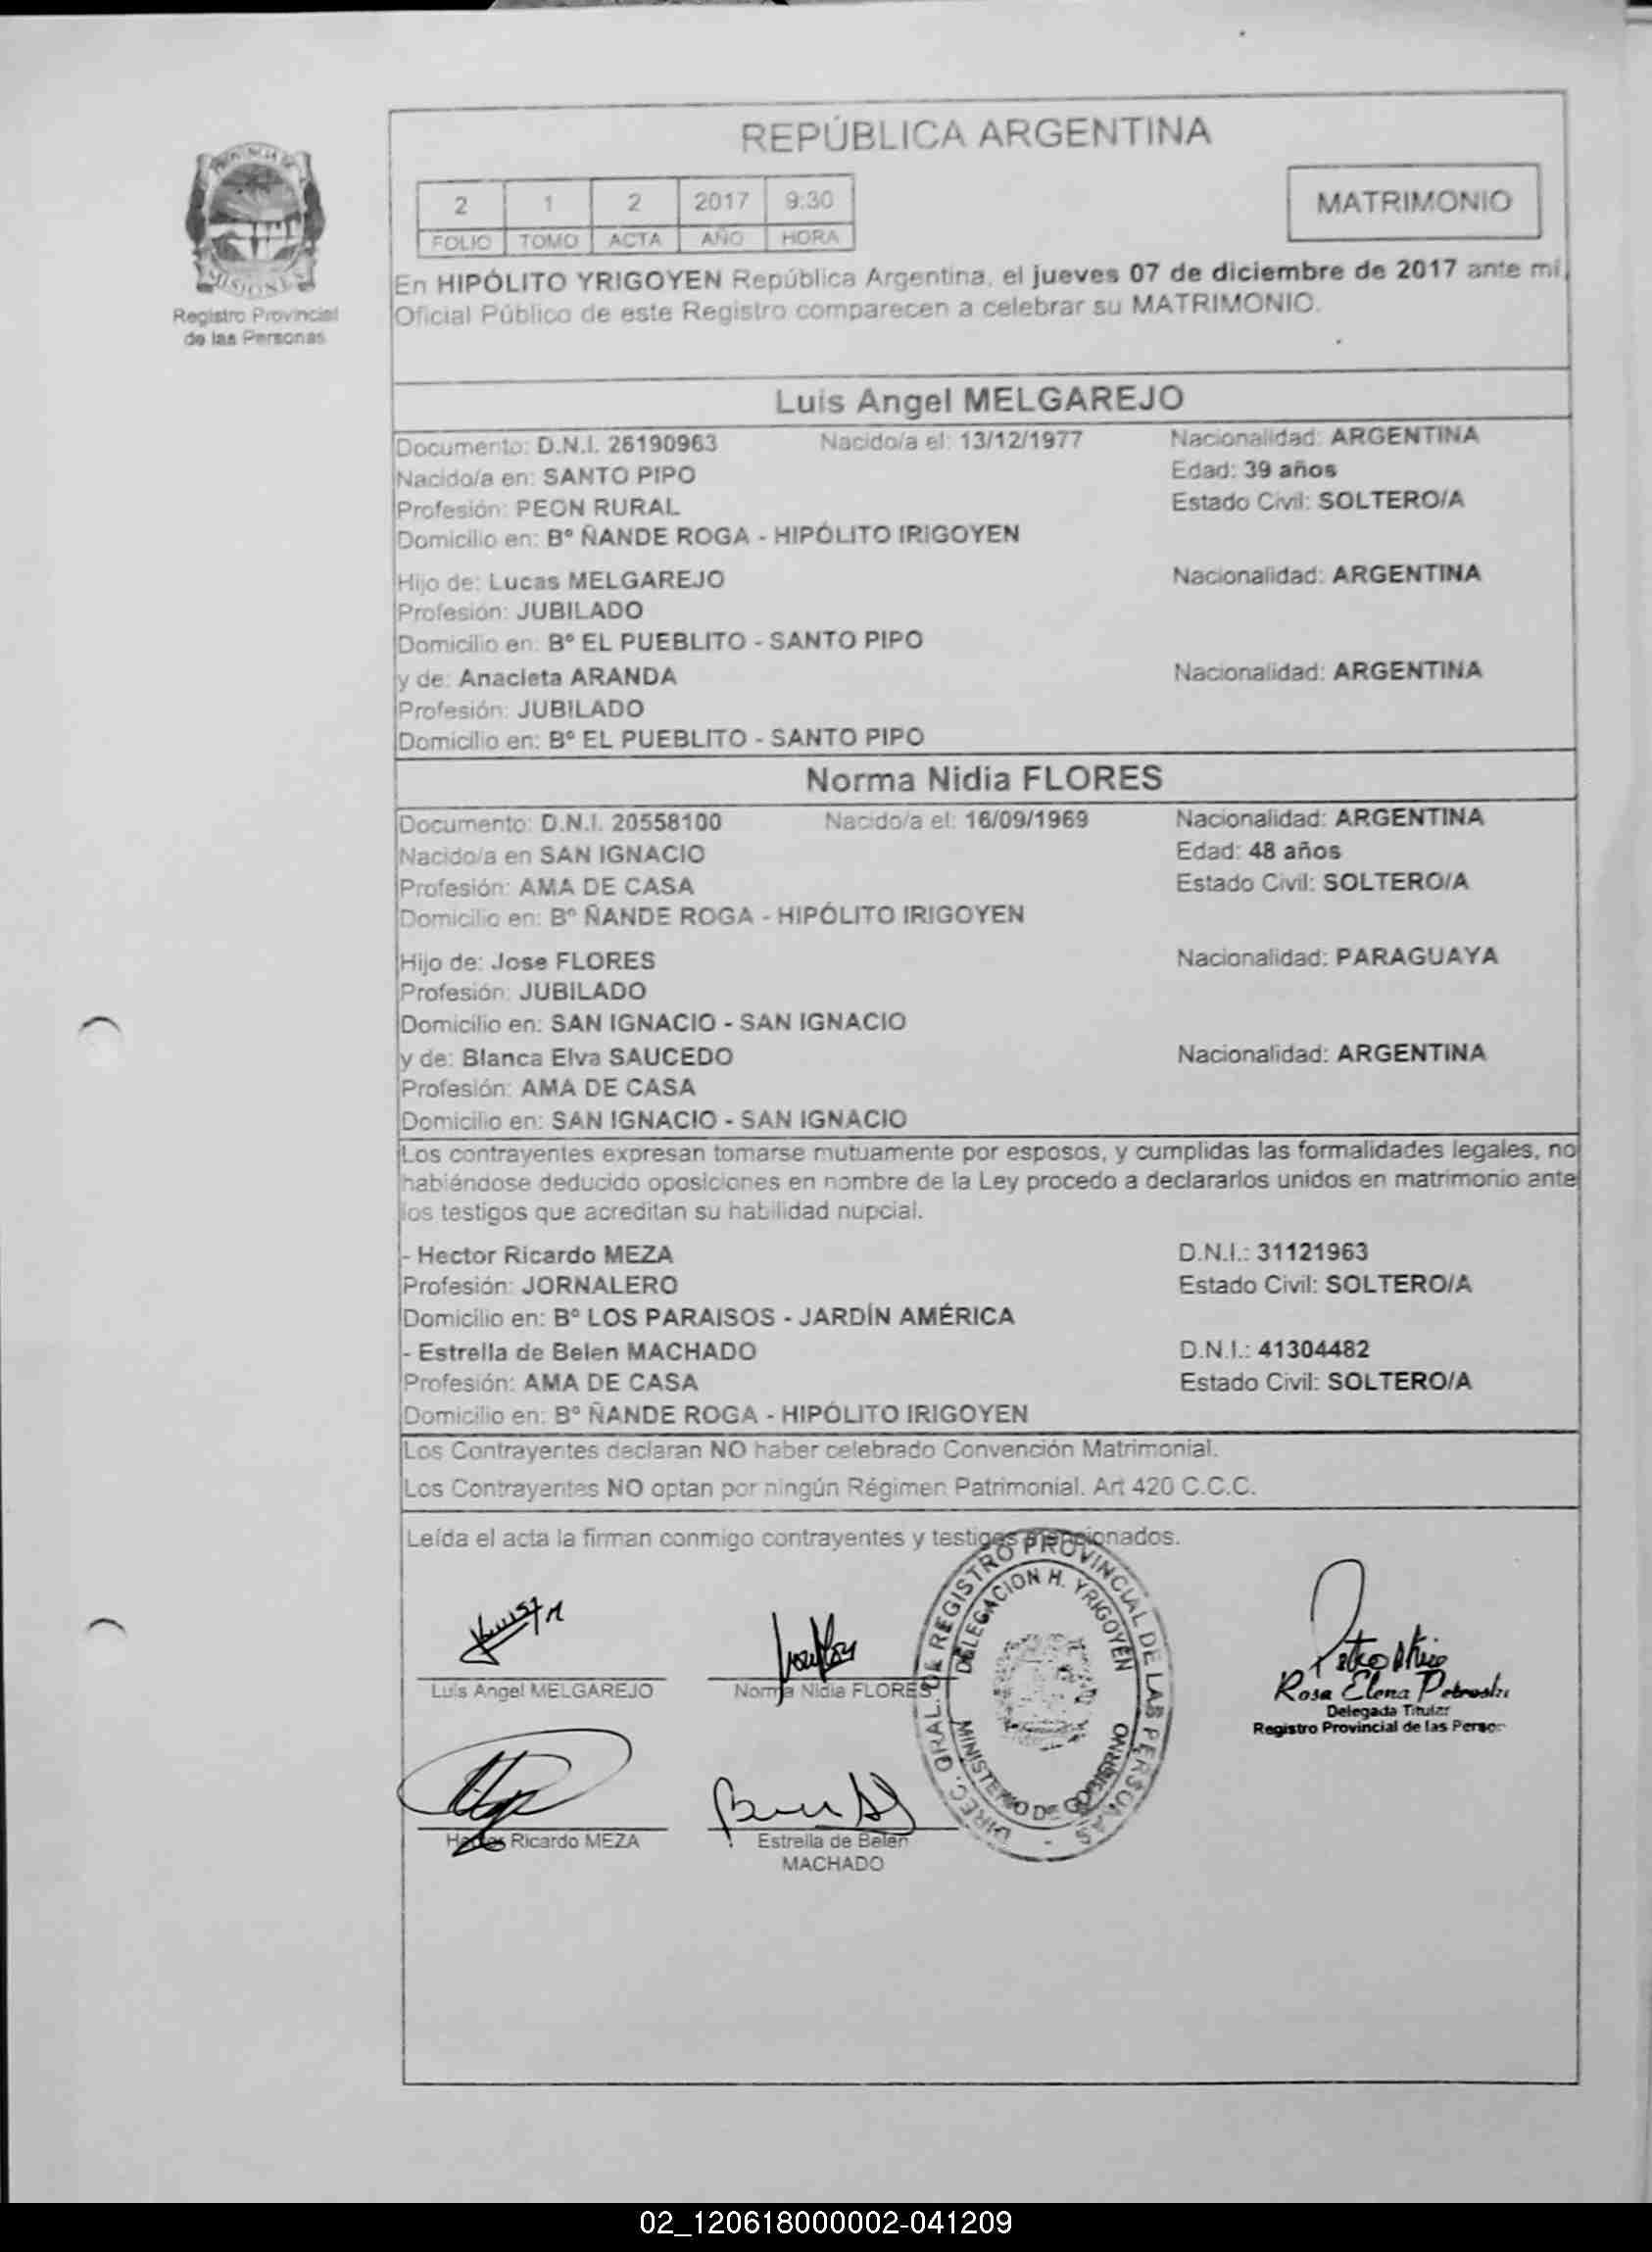 REPÚBLICA ARGENTINA
MATRIMONIO
2 1 2 2017 9:30
FOLIO TOMO ACTA AÑO HORA
PROVINCIA DE
MISIONES
Registro Provincial
de las Personas
En HIPÓLITO YRIGOYEN República Argentina, el jueves 07 de diciembre de 2017 ante mi,
Oficial Público de este Registro comparecen a celebrar su MATRIMONIO.
Luis Angel MELGAREJO
Documento: D.N.I. 26190963 Nacido/a el: 13/12/1977 Nacionalidad: ARGENTINA
Nacido/a en: SANTO PIPO Edad: 39 años
Profesión: PEON RURAL Estado Civil: SOLTERO/A
Domicilio en: Bº ÑANDE ROGA - HIPÓLITO IRIGOYEN
Hijo de: Lucas MELGAREJO Nacionalidad: ARGENTINA
Profesión: JUBILADO
Domicilio en: Bº EL PUEBLITO - SANTO PIPO
y de: Anacleta ARANDA Nacionalidad: ARGENTINA
Profesión: JUBILADO
Domicilio en: Bº EL PUEBLITO - SANTO PIPO
Norma Nidia FLORES
Documento: D.N.I. 20558100 Nacido/a el: 16/09/1969 Nacionalidad: ARGENTINA
Nacido/a en SAN IGNACIO Edad: 48 años
Profesión: AMA DE CASA Estado Civil: SOLTERO/A
Domicilio en: Bº ÑANDE ROGA - HIPÓLITO IRIGOYEN
Hijo de: Jose FLORES Nacionalidad: PARAGUAYA
Profesión: JUBILADO
Domicilio en: SAN IGNACIO - SAN IGNACIO
y de: Blanca Elva SAUCEDO Nacionalidad: ARGENTINA
Profesión: AMA DE CASA
Domicilio en: SAN IGNACIO - SAN IGNACIO
Los contrayentes expresan tomarse mutuamente por esposos, y cumplidas las formalidades legales, no
habiéndose deducido oposiciones en nombre de la Ley procedo a declararlos unidos en matrimonio ante
los testigos que acreditan su habilidad nupcial.
- Hector Ricardo MEZA D.N.I.: 31121963
Profesión: JORNALERO Estado Civil: SOLTERO/A
Domicilio en: Bº LOS PARAISOS - JARDÍN AMÉRICA
- Estrella de Belen MACHADO D.N.I.: 41304482
Profesión: AMA DE CASA Estado Civil: SOLTERO/A
Domicilio en: Bº ÑANDE ROGA - HIPÓLITO IRIGOYEN
Los Contrayentes declaran NO haber celebrado Convención Matrimonial.
Los Contrayentes NO optan por ningún Régimen Patrimonial. Art 420 C.C.C.
Leída el acta la firman conmigo contrayentes y testigos mencionados.
DIREC. GRAL. DE REGISTRO PROVINCIAL DE LAS PERSONAS
DELEGACION H. YRIGOYEN
MINISTERIO DE GOBIERNO
Luis Angel MELGAREJO Norma Nidia FLORES
Rosa Elena Petroski
Delegada Titular
Registro Provincial de las Person
Hector Ricardo MEZA Estrella de Belen
MACHADO
02_120618000002-041209